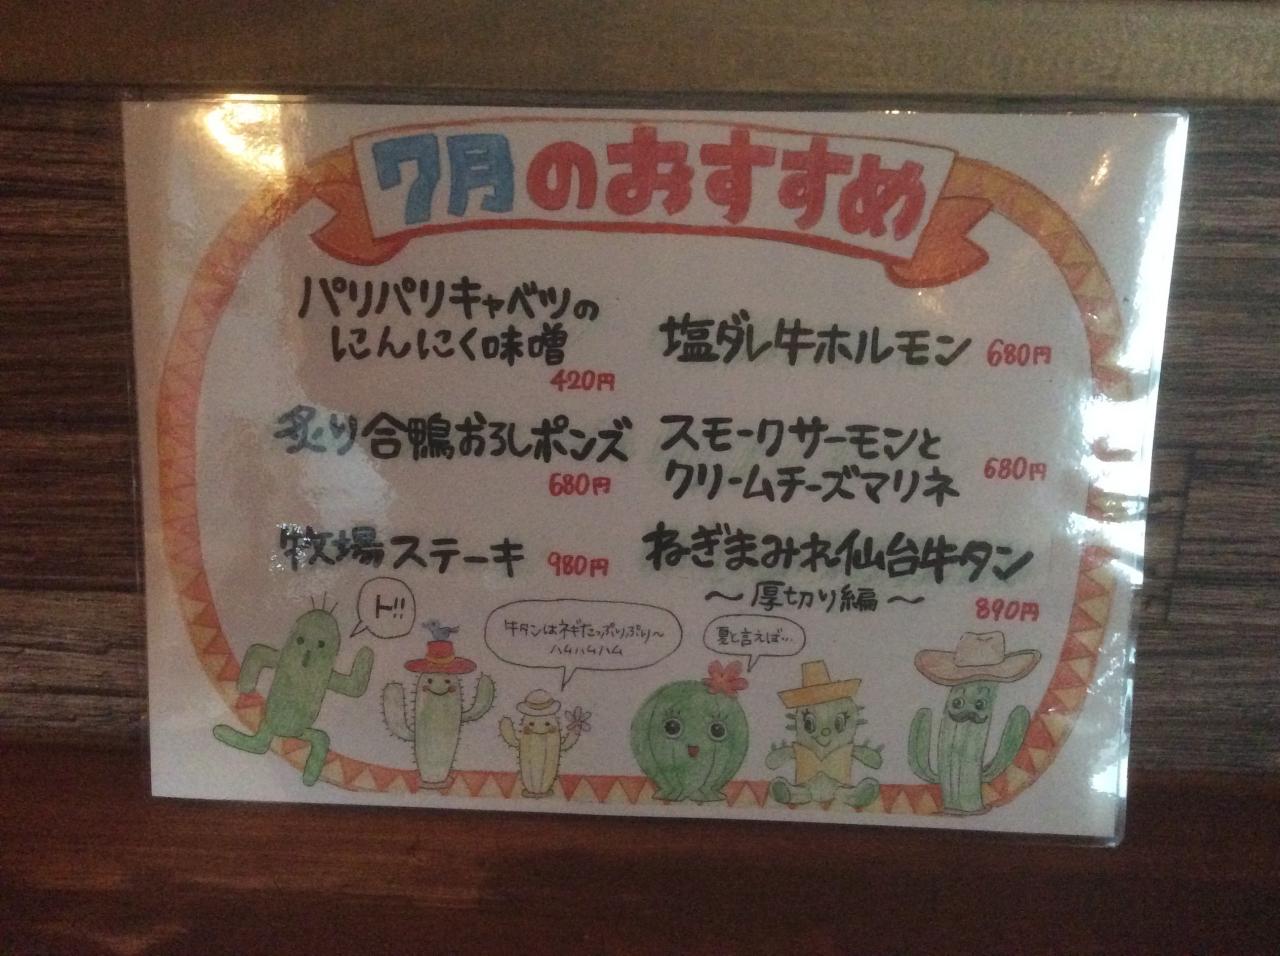 7月のおすすめ
パリパリキャベツの
にんにく味噌
420円
炙り合鴨おろしポンズ
680円
牧場ステーキ 980円
塩ダレ牛ホルモン 680円
スモークサーモンと
クリームチーズマリネ
680円
ねぎまみれ仙台牛タン
～厚切り編～
890円
ト!!
牛タンはネギたっぷりぷり～
ハムハムハム
夏と言えば…